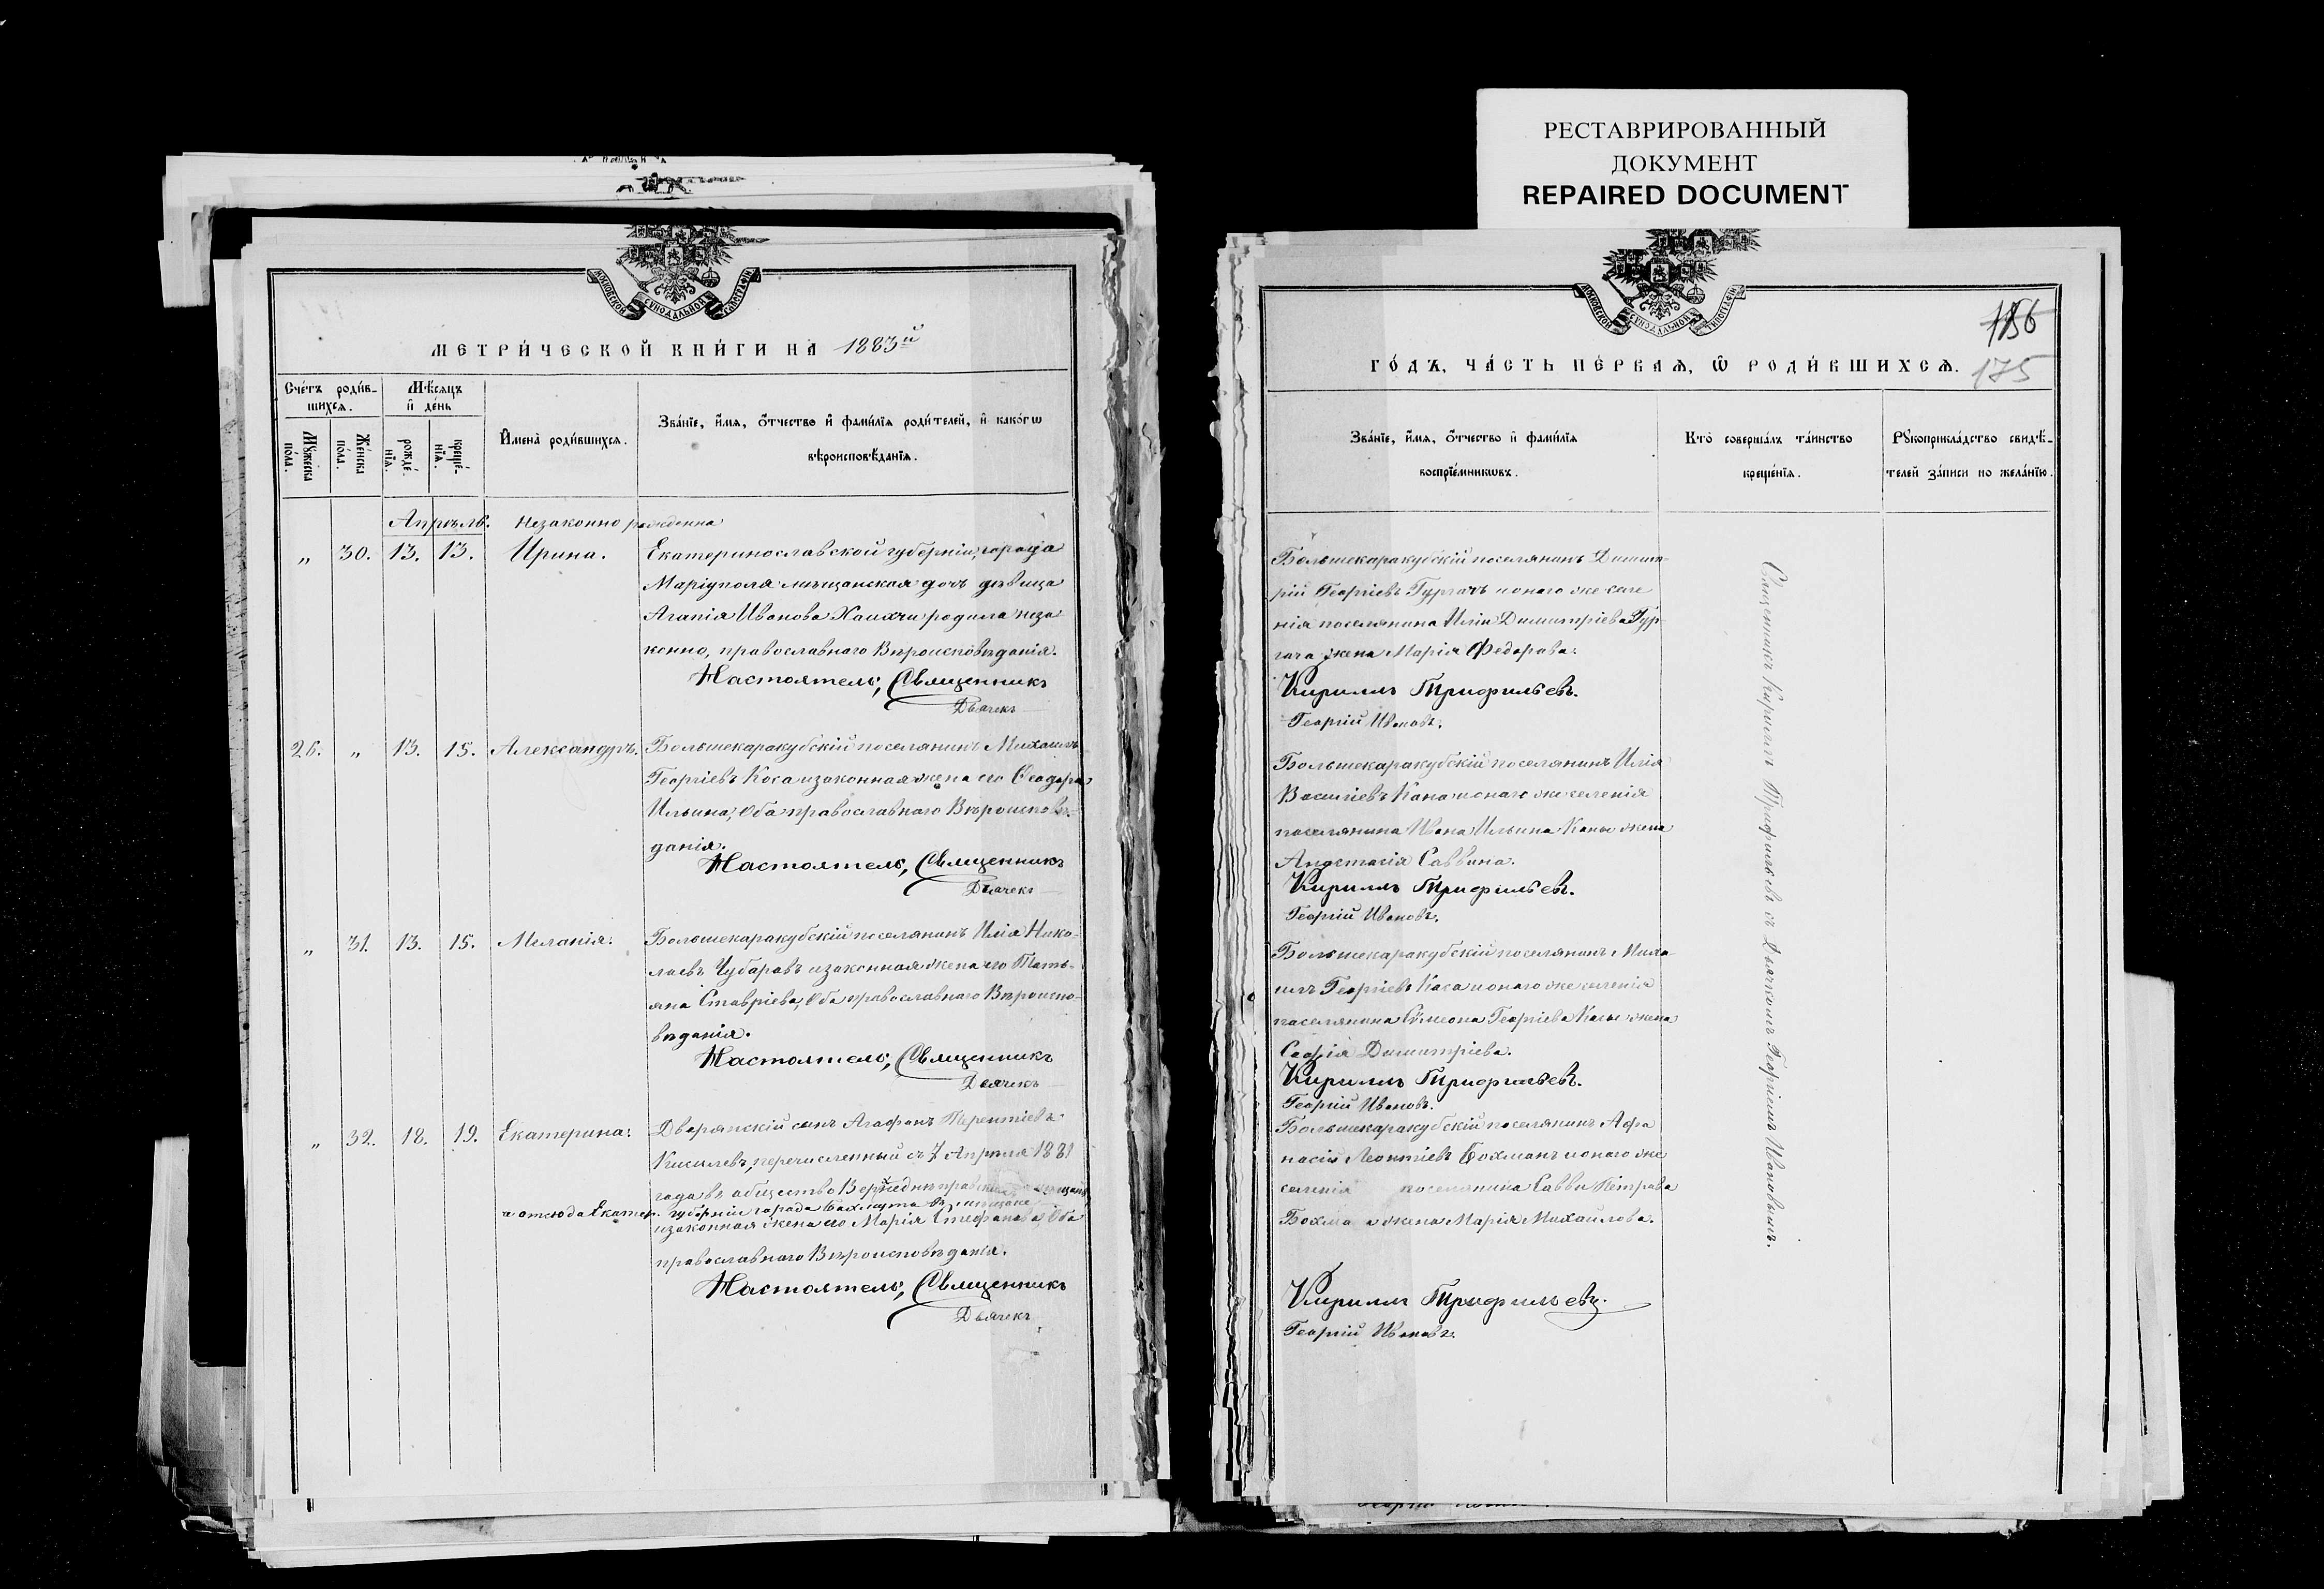 РЕСТАВРИРОВАННЫЙ
ДОКУМЕНТ
REPAIRED DOCUMENT
МОСКОВСКОЙ СѴНОДАЛЬНОЙ ТИПОГРАФІИ
МЕТРИ́ЧЕСКОЙ КНИ́ГИ НА 1883й
Сче́тъ роди́в-
шихся.
Мѣ́сяцъ
и҆ де́нь
Мꙋ́жеска
по́ла.
Же́нска
по́ла.
рожде́-
нїя.
креще́-
нїя.
И҆мена̀ роди́вшихся.
Зва́нїе, и҆́мя, ѻ҆́тчество и҆ фами́лїя роди́телей, и҆ како́гѡ
вѣроисповѣ́данїя.
Апрѣль. Незаконно рожденна
„ 30. 13. 13. Ирина. Екатеринославской губерніи, города
Маріуполя мѣщанская дочь дѣвица
Агапія Иванова родила неза
конно, православнаго Вѣроисповѣданія.
Настоятель, Священникъ
Дьячекъ
26. „ 13. 15. Александръ. Большекаракубскій поселянинъ Михаилъ
Георгіевъ Коса и законная жена его Ѳеодора
Ильина, Оба православнаго Вѣроисповѣ-
данія.
Настоятель, Священникъ
Дьячекъ
„ 31. 13. 15. Меланія. Большекаракубскій поселянинъ Илія Нико-
лаевъ Чубаравъ и законная жена его Тать-
яна Ставріева, Оба православнаго Вѣроиспо-
вѣданія.
Настоятель, Священникъ
Дьячекъ
„ 32. 18. 19. Екатерина. Дворянскій сынъ Агафонъ Терентіевъ
Киселевъ, перечисленный съ 7 Апрѣля 1881
года въ общество
а отсюда Екатер. губерніи города Бахмута въ мѣщане
и законная жена его Марія Стефанова, Оба
православнаго Вѣроисповѣданія.
Настоятель, Священникъ
Дьячекъ
МОСКОВСКОЙ СѴНОДАЛЬНОЙ ТИПОГРАФІИ
186
175
ГО́ДЪ, ЧА́СТЬ ПЕ́РВАЯ, Ѽ РОДИ́ВШИХСЯ.
Зва́нїе, и҆́мя, ѻ҆́тчество и҆ фами́лїя
воспрїе́мникѡвъ.
Кто̀ соверша́лъ та́инство
креще́нїя.
Рꙋкоприкла́дство свидѣ́-
телей за́писи по жела́нїю.
Большекаракубскій поселянинъ Димит-
рій Георгіевъ Гургачъ и онаго же селе
нія поселянина Иліи Димитріева Гур-
гача жена Марія Федорова.
Кириллъ Трифильевъ.
Георгій Ивановъ.
Большекаракубскій поселянинъ Илія
Василіевъ Кана и онаго же селенія
поселянина Ивана Ильина Каны жена
Анастасія Саввина.
Кириллъ Трифильевъ.
Георгій Ивановъ.
Большекаракубскій поселянинъ Миха-
илъ Георгіевъ Каса и онаго же селенія
поселянина Сѵмеона Георгіева Касы жена
Софія Димитріева.
Кириллъ Трифильевъ.
Георгій Ивановъ.
Большекаракубскій поселянинъ Афа
насій Леонтіевъ Бохманъ и онаго же
селенія поселянина Саввы Петрова
жена Марія Михайлова.
Кириллъ Трифильевъ.
Георгій Ивановъ.
Священникъ Кириллъ Трифильевъ съ Дьячкомъ Георгіемъ Ивановымъ.